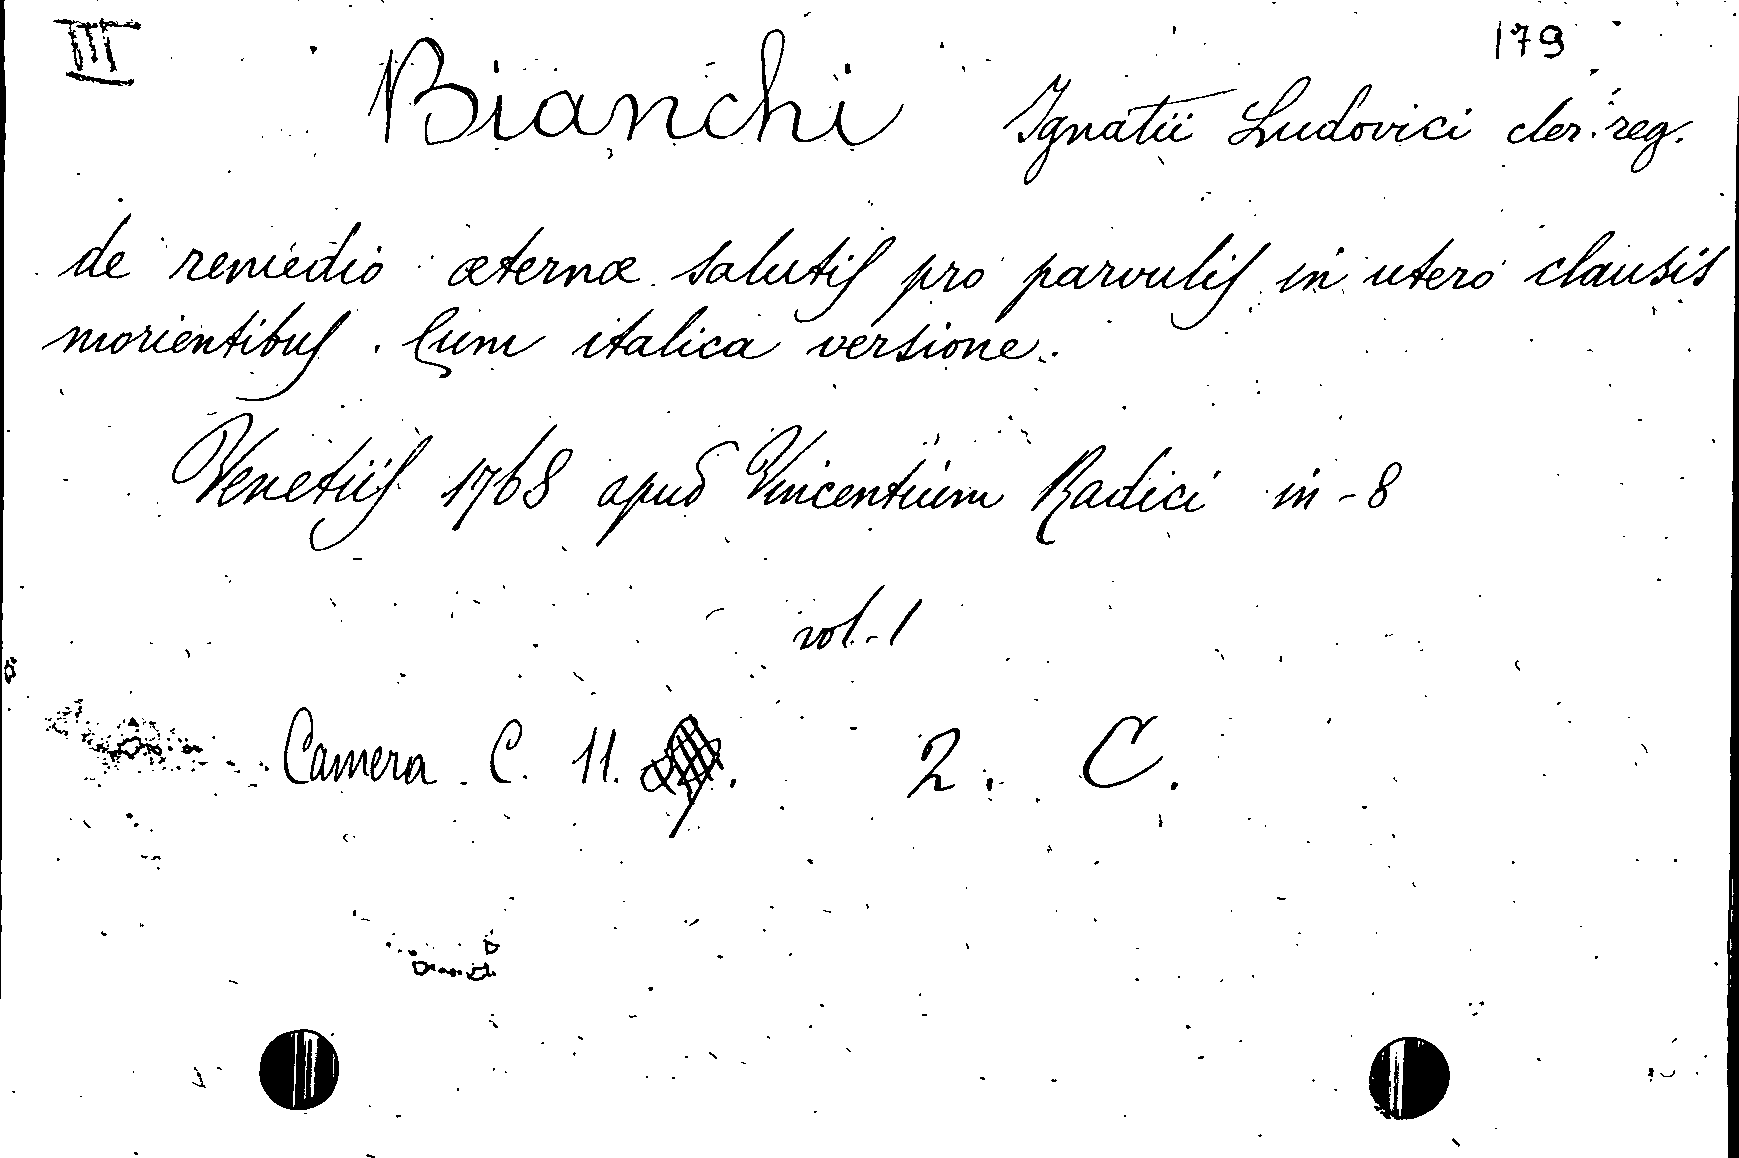 III 179
Bianchi Ignatii Ludovici cler. reg.
de remedio æternæ salutis pro parvulis in utero clausis
morientibus. Cum italica versione.
Venetiis 1768 apud Vincentium Radici in-8
vol. 1
Camera C. 11. 2. C.